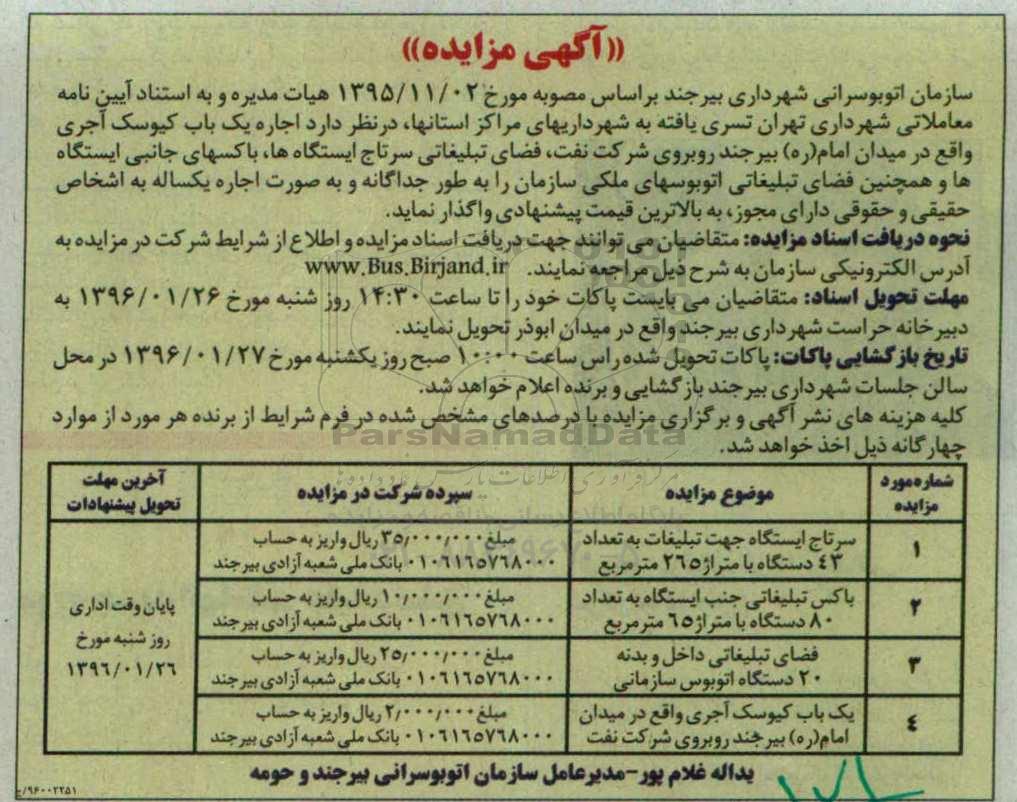 ((آگهی مزایده))
سازمان اتوبوسرانی شهرداری بیرجند براساس مصوبه مورخ ۱۳۹۵/۱۱/۰۲ هیات مدیره و به استناد آیین نامه
معاملاتی شهرداری تهران تسری یافته به شهرداریهای مراکز استانها، درنظر دارد اجاره یک باب کیوسک آجری
واقع در میدان امام(ره) بیرجند روبروی شرکت نفت، فضای تبلیغاتی سرتاج ایستگاه ها، باکسهای جانبی ایستگاه
ها و همچنین فضای تبلیغاتی اتوبوسهای ملکی سازمان را به طور جداگانه و به صورت اجاره یکساله به اشخاص
حقیقی و حقوقی دارای مجوز، به بالاترین قیمت پیشنهادی واگذار نماید.
نحوه دریافت اسناد مزایده: متقاضیان می توانند جهت دریافت اسناد مزایده و اطلاع از شرایط شرکت در مزایده به
آدرس الکترونیکی سازمان به شرح ذیل مراجعه نمایند. www.Bus.Birjand.ir
مهلت تحویل اسناد: متقاضیان می بایست پاکات خود را تا ساعت ۱۴:۳۰ روز شنبه مورخ ۱۳۹۶/۰۱/۲۶ به
دبیرخانه حراست شهرداری بیرجند واقع در میدان ابوذر تحویل نمایند.
تاریخ بازگشایی پاکات: پاکات تحویل شده راس ساعت ۱۰:۰۰ صبح روز یکشنبه مورخ ۱۳۹۶/۰۱/۲۷ در محل
سالن جلسات شهرداری بیرجند بازگشایی و برنده اعلام خواهد شد.
کلیه هزینه های نشر آگهی و برگزاری مزایده با درصدهای مشخص شده در فرم شرایط از برنده هر مورد از موارد
چهارگانه ذیل اخذ خواهد شد.
ParsNamadData
شماره مورد مزایده
موضوع مزایده
سپرده شرکت در مزایده
آخرین مهلت تحویل پیشنهادات
۱
سرتاج ایستگاه جهت تبلیغات به تعداد
۴۳ دستگاه با متراژ ۲۶۵ مترمربع
مبلغ ۳۵/۰۰۰/۰۰۰ ریال واریز به حساب
۰۱۰۶۱۱۶۵۷۶۸۰۰۰ بانک ملی شعبه آزادی بیرجند
۲
باکس تبلیغاتی جنب ایستگاه به تعداد
۸۰ دستگاه با متراژ ۶۵ مترمربع
مبلغ ۱۰/۰۰۰/۰۰۰ ریال واریز به حساب
۰۱۰۶۱۱۶۵۷۶۸۰۰۰ بانک ملی شعبه آزادی بیرجند
۳
فضای تبلیغاتی داخل و بدنه
۲۰ دستگاه اتوبوس سازمانی
مبلغ ۲۵/۰۰۰/۰۰۰ ریال واریز به حساب
۰۱۰۶۱۱۶۵۷۶۸۰۰۰ بانک ملی شعبه آزادی بیرجند
۴
یک باب کیوسک آجری واقع در میدان
امام(ره) بیرجند روبروی شرکت نفت
مبلغ ۲/۰۰۰/۰۰۰ ریال واریز به حساب
۰۱۰۶۱۱۶۵۷۶۸۰۰۰ بانک ملی شعبه آزادی بیرجند
پایان وقت اداری
روز شنبه مورخ
۱۳۹۶/۰۱/۲۶
یداله غلام پور-مدیرعامل سازمان اتوبوسرانی بیرجند و حومه
۹۶۰۰۲۲۵۱/ج